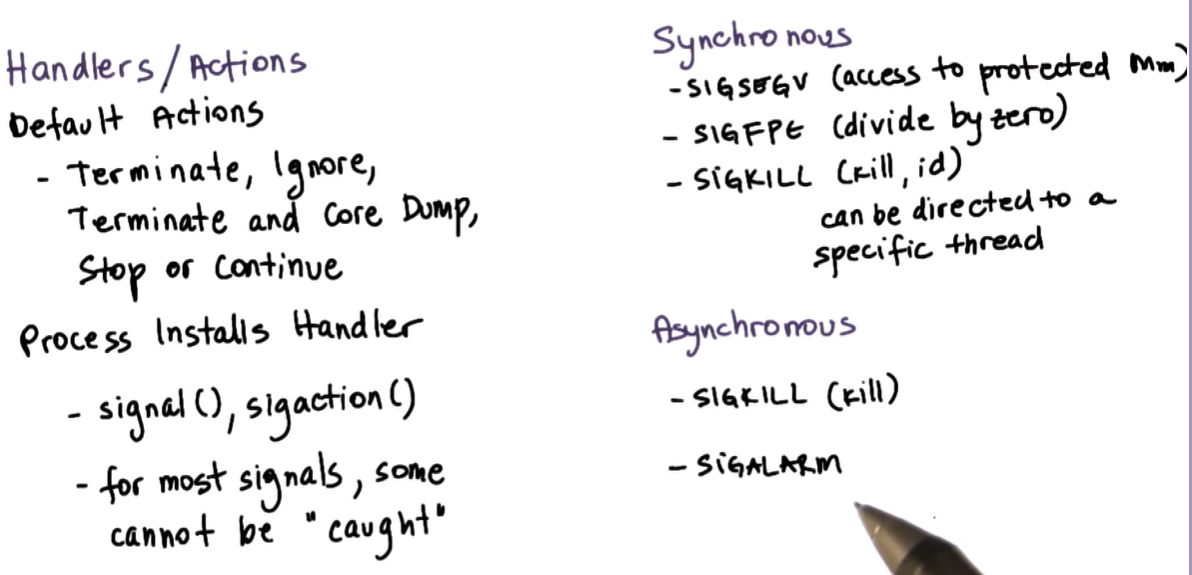 Handlers/Actions
Default Actions
- Terminate, Ignore,
Terminate and Core Dump,
Stop or Continue
Process Installs Handler
- signal(), sigaction()
- for most signals, some
cannot be "caught"
Synchronous
- SIGSEGV (access to protected Mm)
- SIGFPE (divide by zero)
- SIGKILL (kill, id)
can be directed to a
specific thread
Asynchronous
- SIGKILL (kill)
- SIGALARM